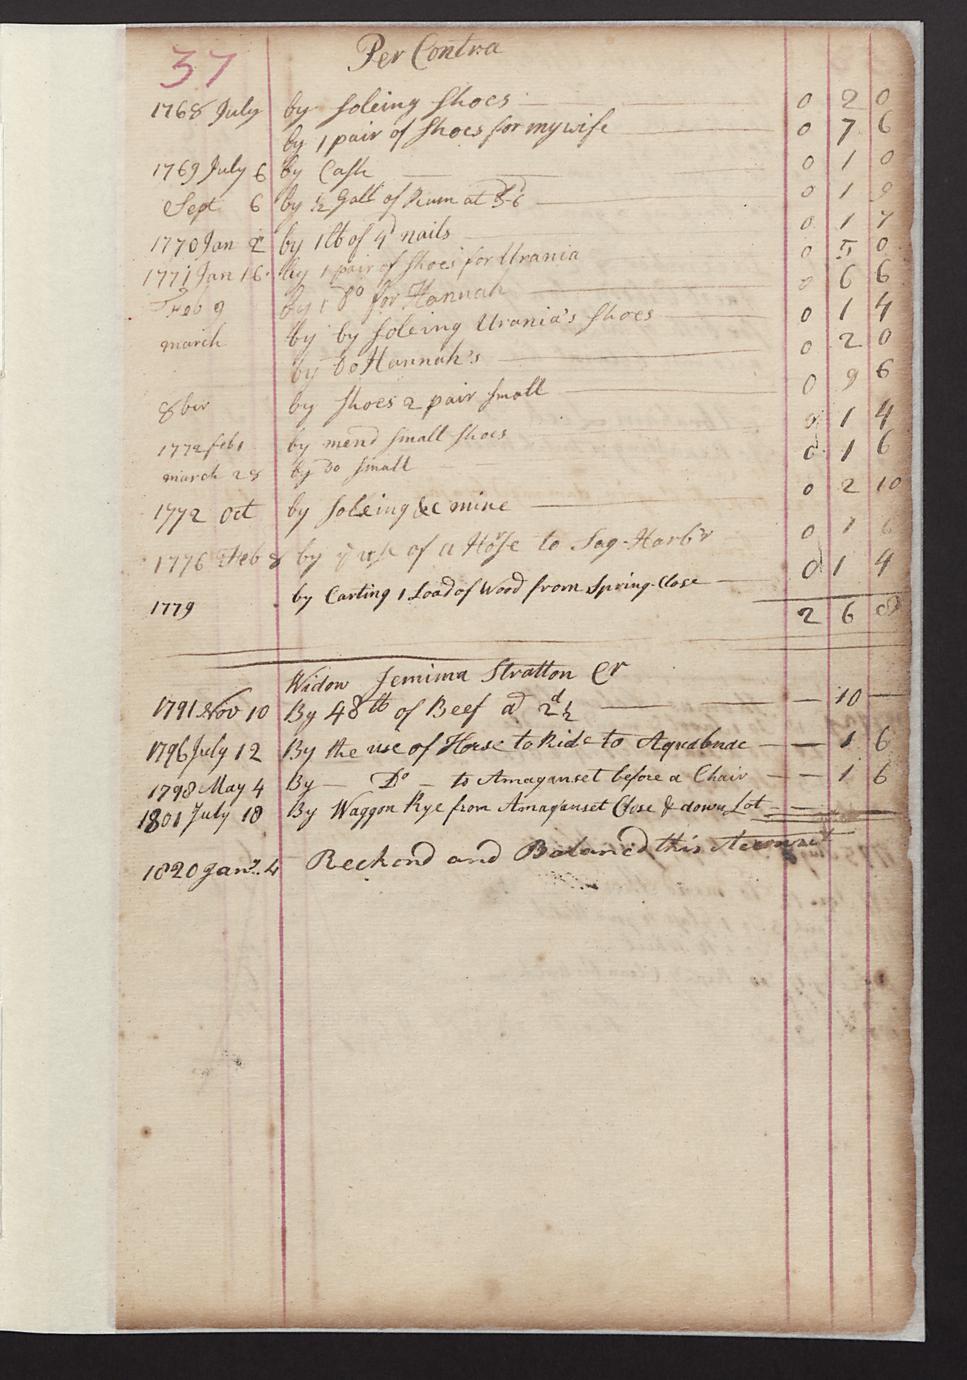 37 Per Contra
1768 July by soleing shoes 0 2 0
by 1 pair of shoes for my wife 0 7 6
1769 July 6 by Cash 0 1 0
Sept 6 by ½ Gall of Rum at 3-6 0 1 9
1770 Jan 2 by 1 lb of 4d nails 0 1 7
1771 Jan 16 by 1 pair of shoes for Urania 0 5 0
Feb 9 by 1 Do for Hannah 0 6 6
march by by soleing Urania's shoes 0 1 4
by Do Hannah's 0 2 0
8ber by shoes 2 pair small 0 9 6
1772 feb 1 by mend small shoes 0 1 4
march 28 by Do small 0 1 6
1772 Oct by soleing &c mine 0 2 10
1776 Feb 8 by use of a Horse to Sag-Harbr 0 1 6
1779 by Carting 1 Load of Wood from Spring-Close 0 1 4
2 6 8
Widow Jemima Stratton Cr
1791 Nov 10 By 48 lb of Beef a 2d½ — 10 —
1796 July 12 By the use of Horse to Ride to Aquabuac — 1 6
1798 May 4 By — Do — to Amaganset before a Chair — 1 6
1801 July 18 By Waggon Rye from Amaganset Close & down Lot
1820 Janr. 4 Reckond and Balancd this Account